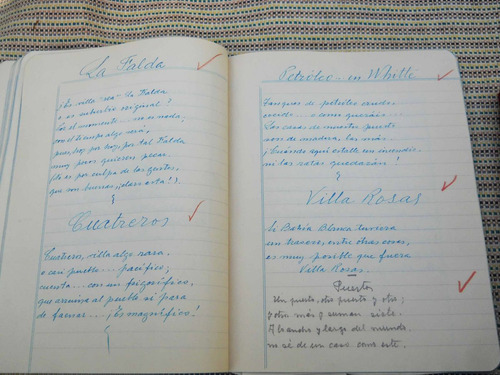 La Falda
¿La villa "sea" La Falda
o es suburbio original?
Por el momento... no es nada;
con el tiempo algo será,
pues, hoy por hoy, por tal Falda
muy pocos quieren pecar.
¡No es por culpa de las gentes,
que son buenas,
Cuatreros
Cuatreros, villa algo rara,
o casi pueblo... pacífico;
cuenta... con un frigorífico
que asesina al pueblo si para
de faenar... ¡Es magnífico!
Petróleo - in White
Tanques de petróleo crudo,
cocido... o como queráis...
Las casas de nuestro puerto
son de madera, las más.
¡Cuándo aquí estalle un incendio
ni las ratas quedarán!
Villa Rosas
Si Bahía Blanca tuviera
un trasero, entre otras cosas,
es muy posible que fuera
Villa Rosas.
Puertos
Un puerto, otro puerto y otro;
y otro más y suman siete.
A lo ancho y largo del mundo
no sé de un caso como este.